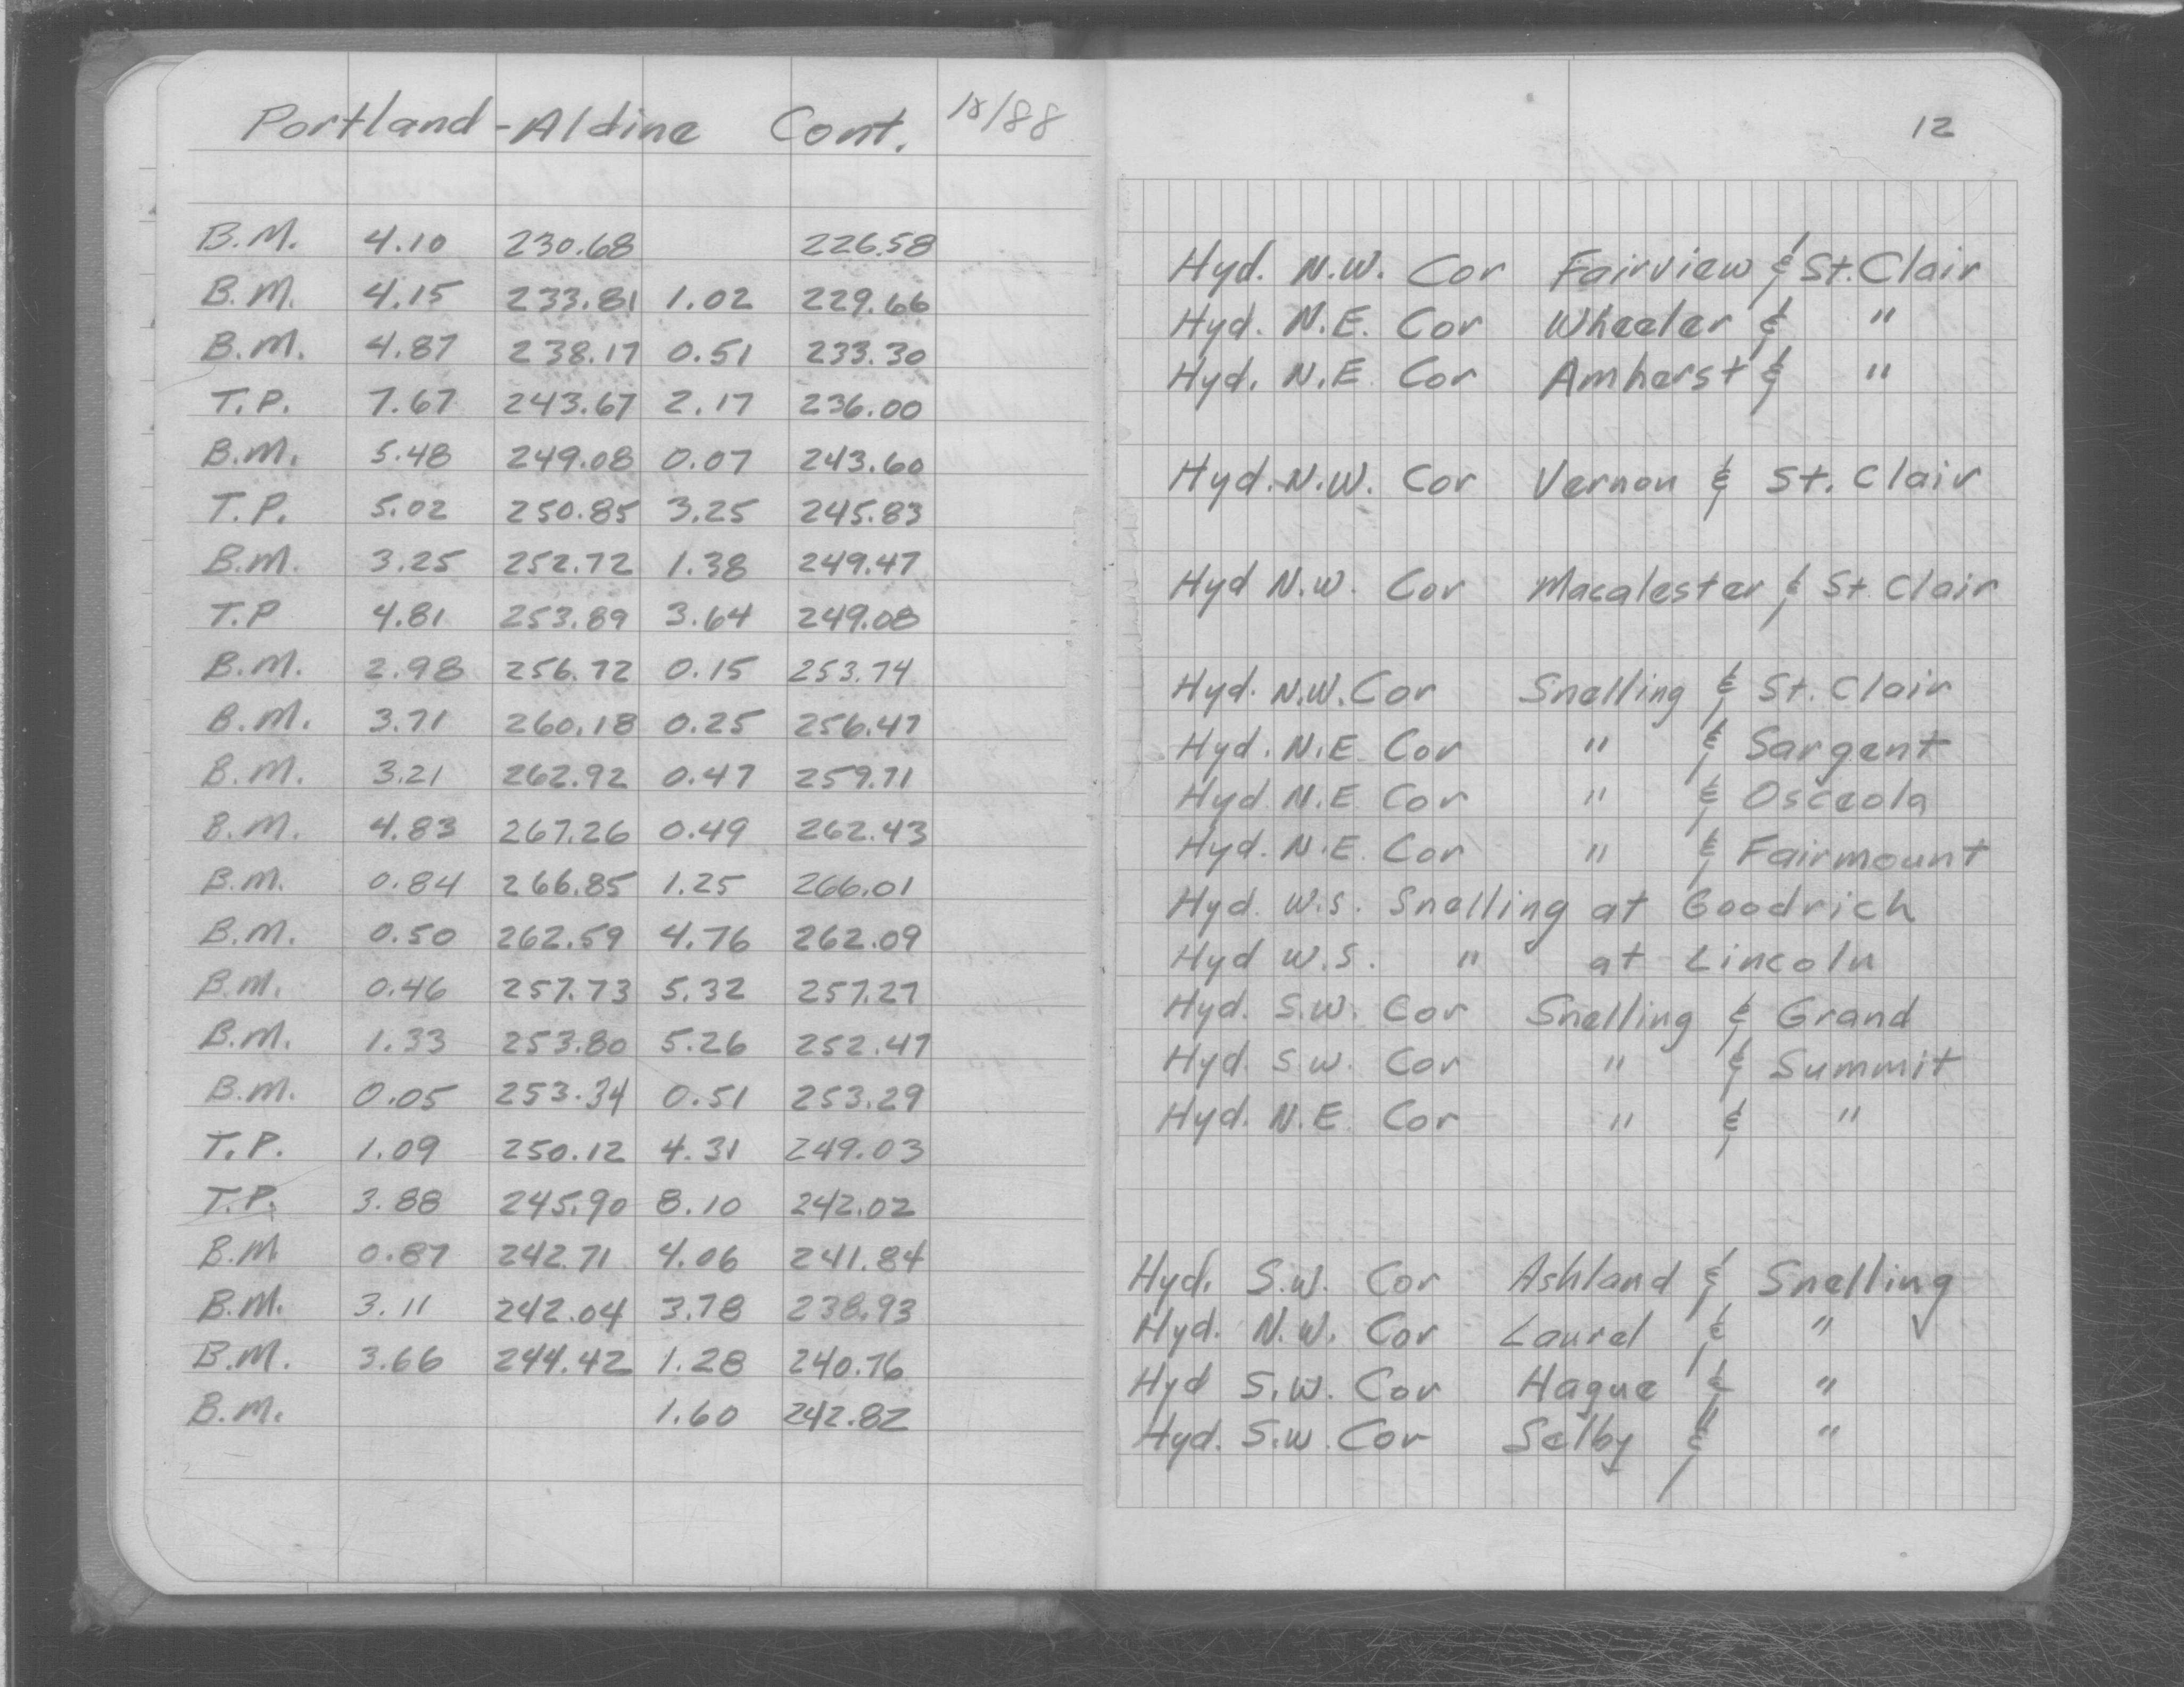 Portland-Aldine Cont.
12
B.M. 4.10 230.68 226.58 Hyd. N.W. Cor Fairview & St. Clair
B.M. 4.15 233.81 1.02 229.66 Hyd. N.E. Cor Wheeler & "
B.M. 4.87 238.17 0.51 233.30 Hyd. N.E Cor Amherst & "
T.P. 7.67 243.67 2.17 236.00
B.M. 5.48 249.08 0.07 243.60 Hyd. N.W. Cor Vernon & St. Clair
T.P. 5.02 250.85 3.25 245.83
B.M. 3.25 252.72 1.38 249.47 Hyd N.W. Cor Macalester & St Clair
T.P 4.81 253.89 3.64 249.08
B.M. 2.98 256.72 0.15 253.74 Hyd. N.W. Cor Snelling & St. Clair
B.M. 3.71 260.18 0.25 256.47 Hyd. N.E Cor " & Sargent
B.M. 3.21 262.92 0.47 259.71 Hyd N.E Cor " & Osceola
B.M. 4.83 267.26 0.49 262.43 Hyd. N.E. Cor " & Fairmount
B.M. 0.84 266.85 1.25 266.01 Hyd. W.S. Snelling at Goodrich
B.M. 0.50 262.59 4.76 262.09 Hyd W.S. " at Lincoln
B.M. 0.46 257.73 5.32 257.27 Hyd. S.W. Cor Snelling & Grand
B.M. 1.33 253.80 5.26 252.47 Hyd. S.W. Cor " & Summit
B.M. 0.05 253.34 0.51 253.29 Hyd. N.E. Cor " & "
T.P. 1.09 250.12 4.31 249.03
T.P. 3.88 245.90 8.10 242.02
B.M 0.87 242.71 4.06 241.84 Hyd. S.W. Cor Ashland & Snelling
B.M. 3.11 242.04 3.78 238.93 Hyd. N.W. Cor Laurel & " ✓
B.M. 3.66 244.42 1.28 240.76 Hyd S.W. Cor Hague & "
B.M. 1.60 242.82 Hyd. S.W. Cor Selby & "